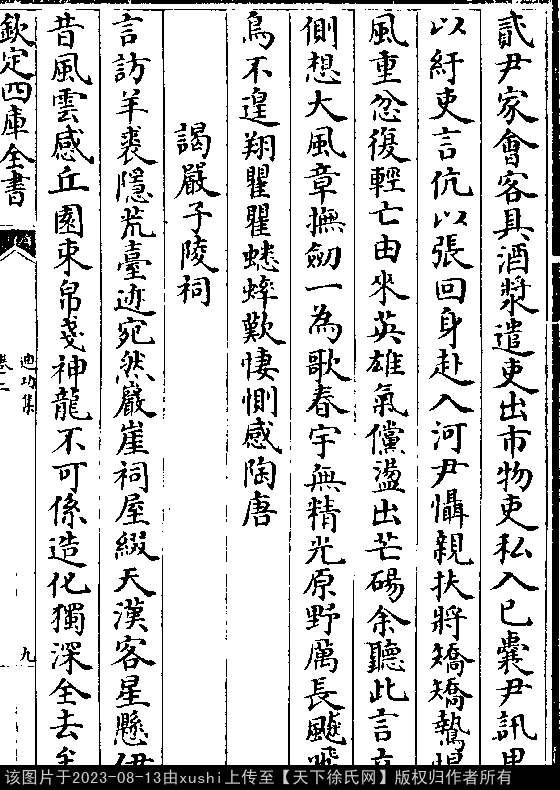 貳尹家會客具酒漿遣吏出市物吏私入已囊尹訊
以紆吏言伉以張回身赴入河尹懾親扶將矯矯鷙
風重忿復輕亡由來英雄氣儻盪出芒碭余聽此言
側想大風章撫劒一為歌春宇無精光原野厲長飇飛
鳥不遑翔瞿瞿蟋蟀歎悽惻感陶唐
謁嚴子陵祠
言訪羊裘隱荒臺迹宛然嚴崖祠屋綴天漢客星懸伊
昔風雲感丘園束帛戔神龍不可係造化獨深全去
欽定四庫全書
迪功集
卷二
九
该图片于2023-08-13由xushi上传至【天下徐氏网】版权归作者所有